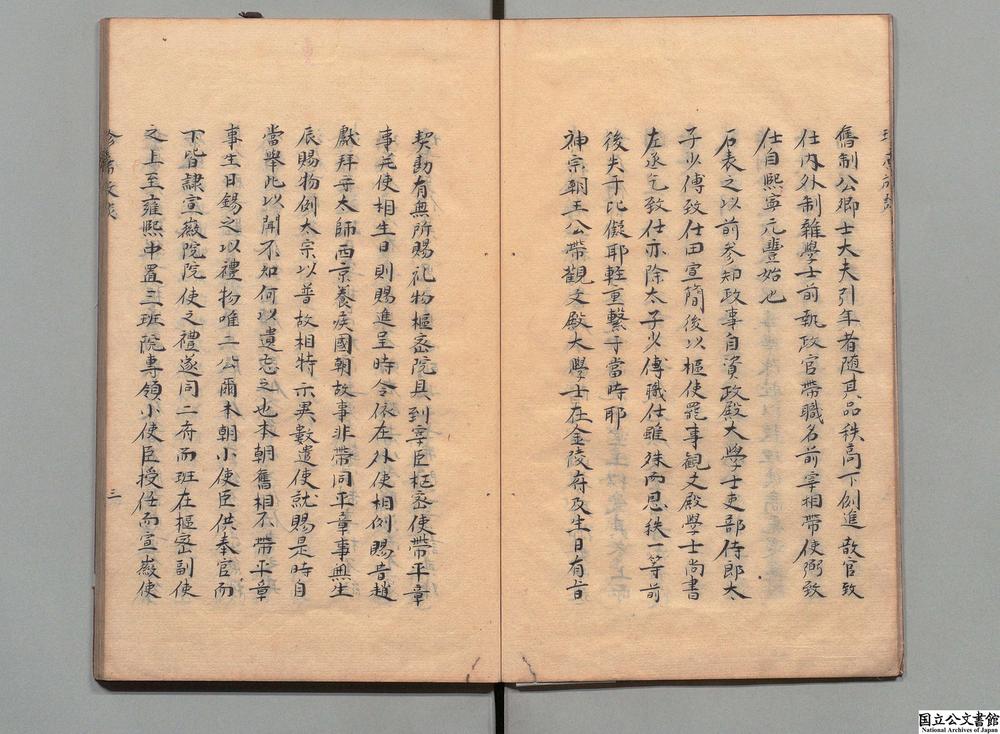 舊制公卿士大夫引年者随其品秩高下例進散官致
仕内外制雜學士前執政官帶職名前宰相帶使弼致
仕自熙寧元豐始也
石表之以前參知政事自資政殿大學士吏部侍郎太
子少傅致仕田宣簡後以樞使罷事觀文殿學士尚書
左丞乞致仕亦除太子少傅職仕雖殊而恩秩一等前
後失于比儗耶軽重繫于當時耶
神宗朝王公帶觀文殿大學士在金陵府及生日有旨
契勘有無所賜礼物樞密院具到宰臣樞密使帶平章
事充使相生日則賜進呈時令依在外使相例賜昔趙
獻拜守太師西京養疾國朝故事非帶同平章事無生
辰賜物例太宗以普故相特示異數遣使就賜是時自
當舉此以開不知何以遺忘之也本朝舊相不帶平章
事生日錫之以禮物唯二公爾本朝小使臣供奉官而
下皆隷宣徽院院使之禮遂同二府而班在樞密副使
之上至雍熙中置三班院專領小使臣授任而宣徽使
三
国立公文書館
National Archives of Japan